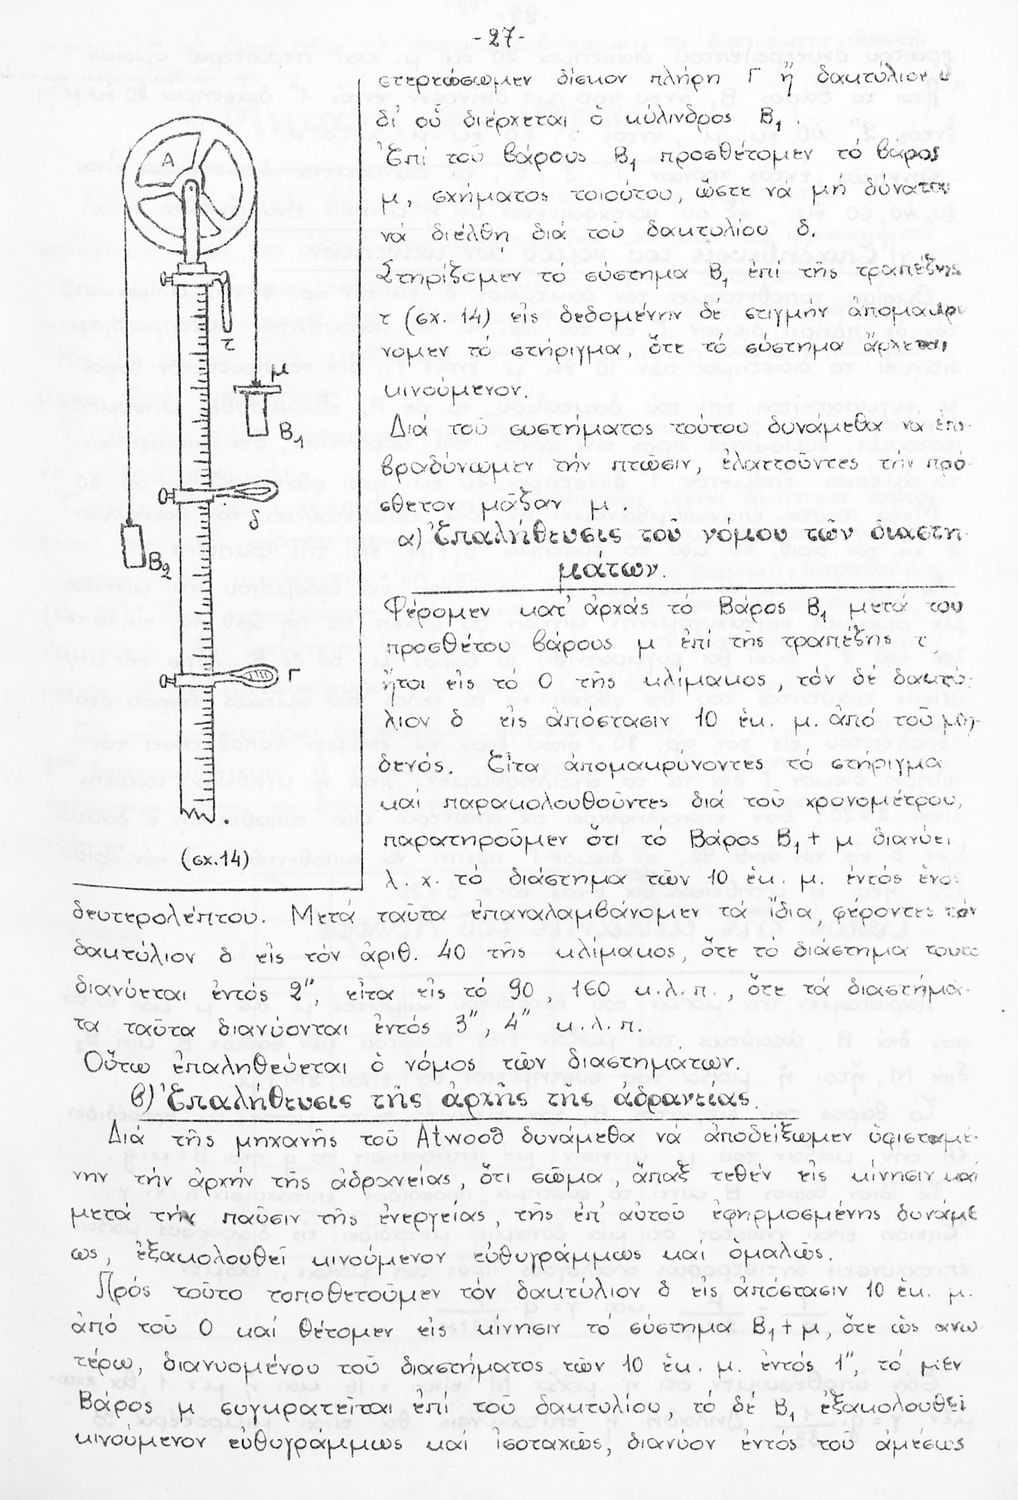 -27-
στερεώσωμεν δίσκον πλήρη Γ ἤ δακτύλιον δ
δι' οὗ διέρχεται ὁ κύλινδρος Β1.
Ἐπί τοῦ βάρους Β1 προσθέτομεν τό βάρος
μ, σχήματος τοιούτου, ὥστε νά μή δύναται
νά διέλθη διά του δακτυλίου δ.
Στηρίζομεν τό σύστημα Β1 ἐπί τῆς τραπέζης
τ (σχ. 14) εἰς δεδομένην δέ στιγμήν απομακρύ
νομεν τό στήριγμα, ὅτε τό σύστημα ἄρχεται
κινούμενον.
Διά τοῦ συστήματος τούτου δυνάμεθα νά ἐπι-
βραδύνωμεν τήν πτῶσιν, ἐλαττοῦντες τήν πρό-
σθετον μᾶζαν μ.
α) Ἐπαλήθευσις τοῦ νόμου τῶν διαστη-
μάτων.
Φέρομεν κατ' ἀρχάς τό Βάρος Β1 μετά του
προσθέτου βάρους μ ἐπί τῆς τραπέζης τ,
ἤτοι εἰς τό 0 τῆς κλίμακος, τόν δέ δακτύ-
λιον δ εἰς ἀπόστασιν 10 ἑκ. μ. ἀπό του μη-
δενός. Εἶτα ἀπομακρύνοντες τό στήριγμα
καί παρακολουθοῦντες διά τοῦ χρονομέτρου,
παρατηροῦμεν ὅτι τό Βάρος Β1 + μ διανύει
λ.χ. τό διάστημα τῶν 10 ἑκ. μ. ἐντός ἑνός
δευτερολέπτου. Μετά ταῦτα ἐπαναλαμβάνομεν τά ἴδια φέροντες τόν
δακτύλιον δ εἰς τόν ἀριθ. 40 τῆς κλίμακος, ὅτε τό διάστημα τοῦτο
διανύεται ἐντός 2", εἶτα εἰς τό 90, 160 κ.λ.π., ὅτε τά διαστήμα-
τα ταῦτα διανύονται ἐντός 3", 4" κ.λ.π.
Οὕτω ἐπαληθεύεται ὁ νόμος τῶν διαστημάτων.
β) Ἐπαλήθευσις τῆς ἀρχῆς τῆς ἀδρανείας.
Διά τῆς μηχανῆς τοῦ Atwood δυνάμεθα νά ἀποδείξωμεν ὑφισταμέ-
νην τήν ἀρχήν τῆς ἀδρανείας, ὅτι σῶμα, ἅπαξ τεθέν εἰς κίνησιν καί
μετά τήν παῦσιν τῆς ἐνεργείας, τῆς ἐπ' αὐτοῦ ἐφηρμοσμένης δυνάμε
ως, ἐξακολουθεῖ κινούμενον εὐθυγράμμως καί ὁμαλῶς.
Πρός τοῦτο τοποθετοῦμεν τόν δακτύλιον δ εἰς ἀπόστασιν 10 ἑκ. μ.
ἀπό τοῦ 0 καί θέτομεν εἰς κίνησιν τό σύστημα Β1 + μ, ὅτε ὡς ἀνω
τέρω, διανυομένου τοῦ διαστήματος τῶν 10 ἑκ. μ. ἐντός 1", τό μέν
Βάρος μ συγκρατεῖται ἐπί τοῦ δακτυλίου, τό δέ Β1 ἐξακολουθεῖ
κινούμενον εὐθυγράμμως καί ἰσοταχῶς, διανύον ἐντός τοῦ ἀμέσως
Α
τ
μ
Β1
δ
Β2
Γ
(σχ.14)